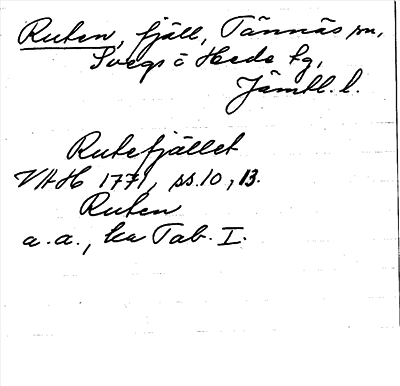 Ruten, fjäll, Tännäs sn,
Svegs o Hede tg,
Jämtl. l.
Rutefjället
VAH 1771, ss. 10, 13.
Ruten
a.a., ka Tab. I.